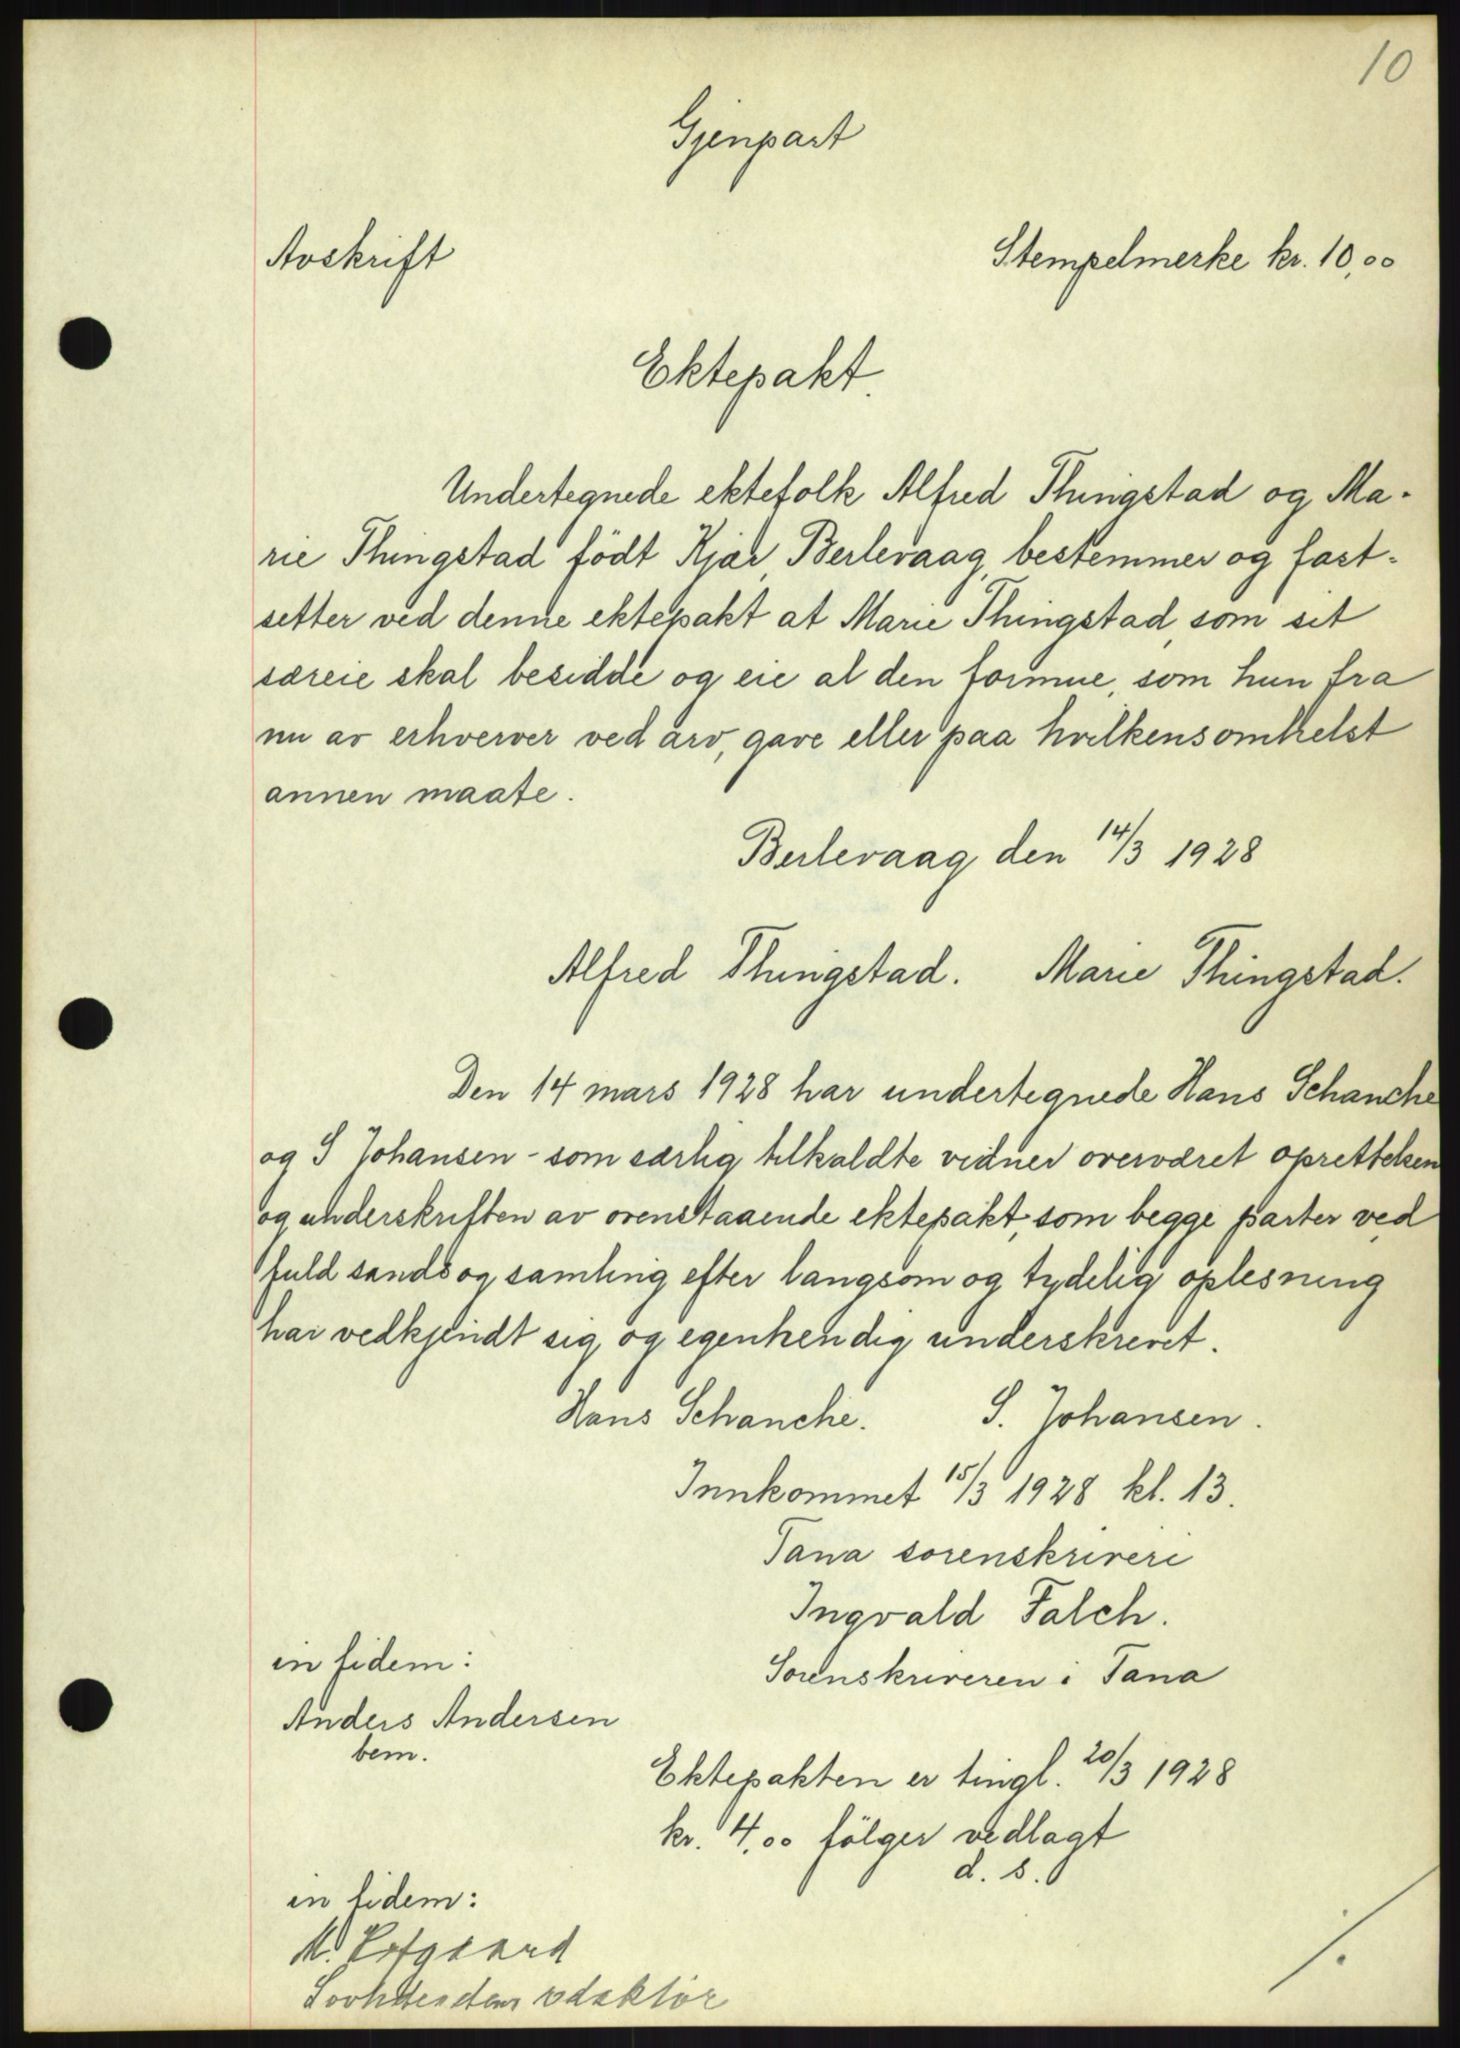 10
Gjenpart
Avskrift
Stempelmerke kr. 10,00
Ektepakt.
Undertegnede ektefolk Alfred Thingstad og Ma-
rie Thingstad født Kjær, Berlevaag, bestemmer og fast-
setter ved denne ektepakt at Marie Thingstad, som sit
særeie skal besidde og eie al den formue, som hun fra
nu av erhverver ved arv, gave eller paa hvilkensomhelst
annen maate.
Berlevaag den 14/3 1928
Alfred Thingstad. Marie Thingstad.
Den 14 mars 1928 har undertegnede Hans Schanche
og S Johansen - som særlig tilkaldte vidner overværet oprettelsen
og underskriften av ovenstaaende ektepakt, som begge parter ved
fuld sands og samling efter langsom og tydelig oplesning
har vedkjendt sig og egenhendig underskrevet.
Hans Schanche. S. Johansen.
Innkommet 15/3 1928 kl. 13.
Tana sorenskriveri
Ingvald Falch.
Sorenskriveren i Tana
in fidem:
Anders Andersen
bem.
Ektepakten er tingl. 20/3 1928
kr. 4,00 følger vedlagt
d. s.
in fidem:
M.
redaktør